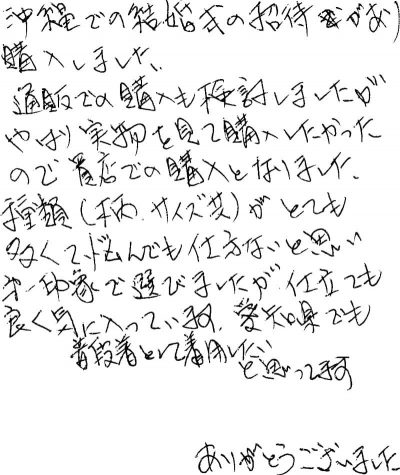 沖縄での結婚式の招待があり
購入しました。
通販での購入も検討しましたが
やはり実物を見て購入したかった
ので貴店での購入となりました。
種類(柄、サイズ共)がとても
多くて、悩んでも仕方ないと思い
第一印象で選びましたが、仕立ても
良く気に入っています。愛知県でも
普段着として着用したい
と思ってます
ありがとうございました